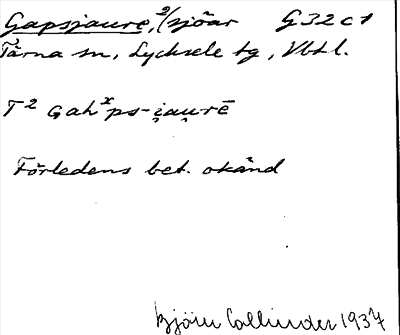 Gapsjaure, 2/ sjöar G32c1
Tärna sn, Lycksele tg, Vbtl.
T² Gahˣps-i̯au̯rē
Förledens bet. okänd
Björn Collinder 1937